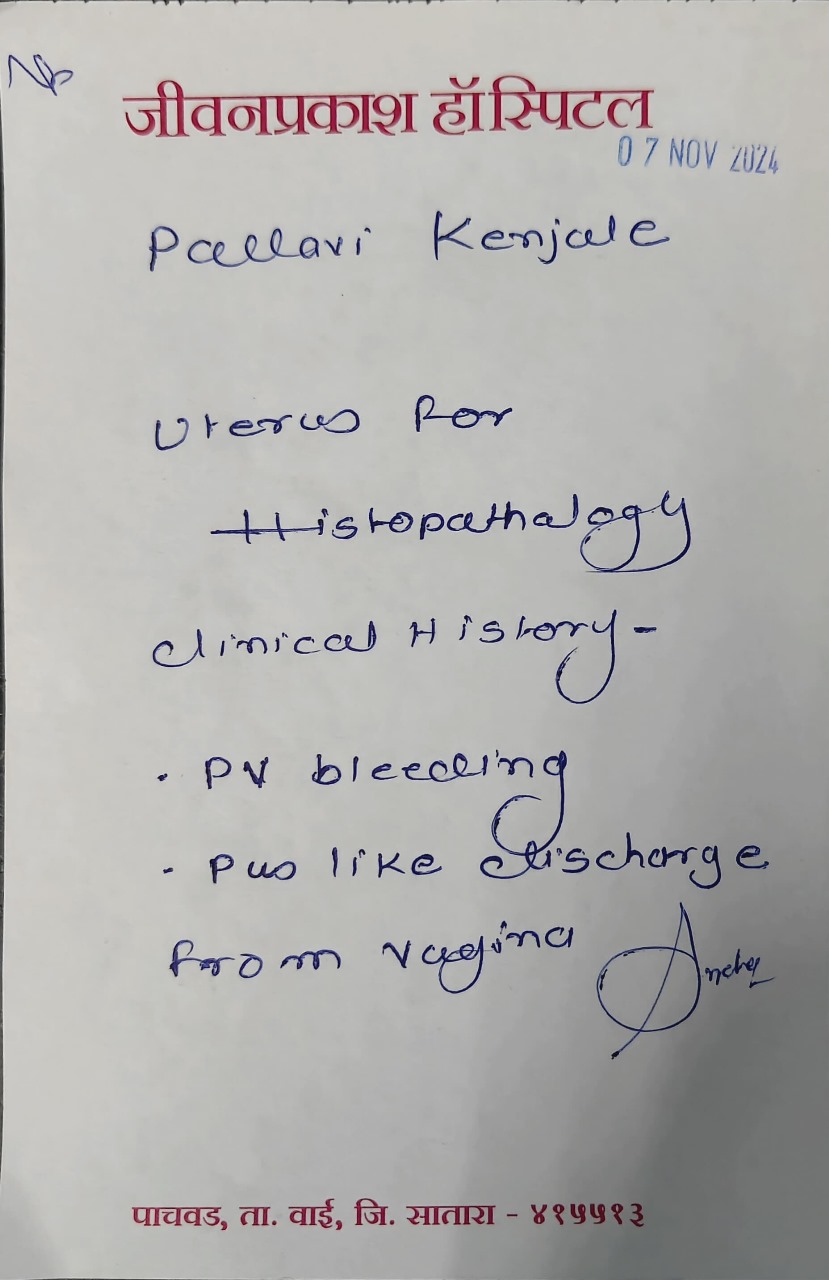 जीवनप्रकाश हॉस्पिटल
07 NOV 2024
Pallavi Kenjale
Uterus for
Histopathalogy
clinical History-
. PV bleeding
. Pus like discharge
from vagina
पाचवड, ता. वाई, जि. सातारा - ४१५५१३